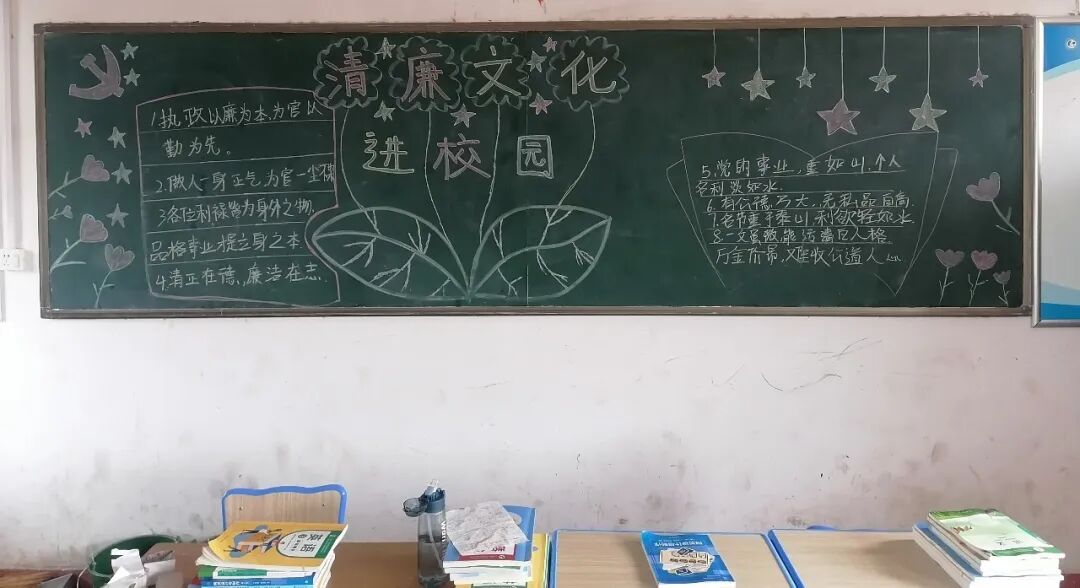 清廉文化
进校园
1.执政以廉为本,为官以
勤为先。
2.做人一身正气,为官一尘
3.名位利禄皆为身外之物,
品格事业 立身之本
4.清正在德,廉洁在志
5.党的事业,重如山,个人
名利淡如水
6.有公德乃大,无私品自高
7.名节重于泰山,利欲轻如水
8.一文虽微,能污清白人格
万金 收公道人心
英语